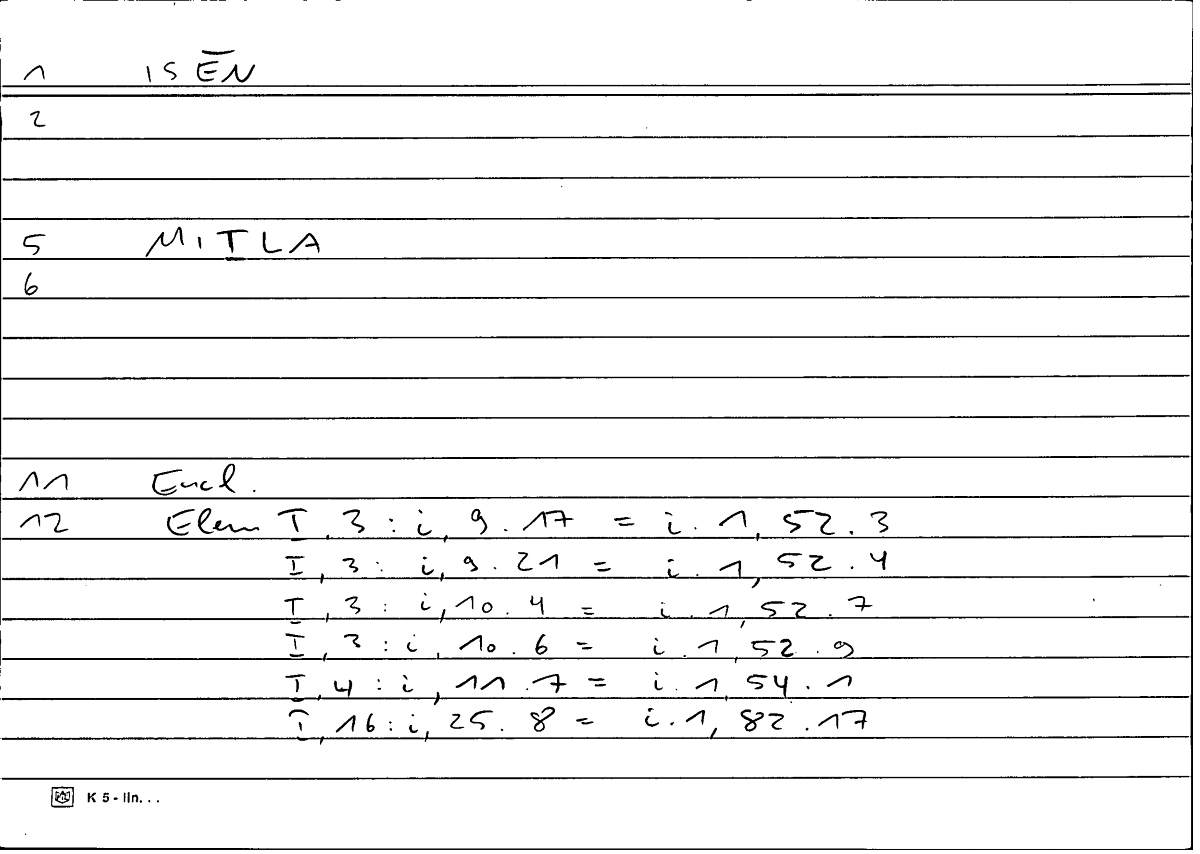 1 IS ĒN
2
5 MIṮLA
6
11 Eucl.
12 Elem I, 3 : i, 9. 17 = i. 1, 52. 3
I, 3 : i, 9. 21 = i. 1, 52. 4
I, 3 : i, 10. 4 = i. 1, 52. 7
I, 3 : i, 10. 6 = i. 1, 52. 9
I, 4 : i, 11. 7 = i. 1, 54. 1
I, 16 : i, 25. 8 = i. 1, 82. 17
K 5 - lin. . .